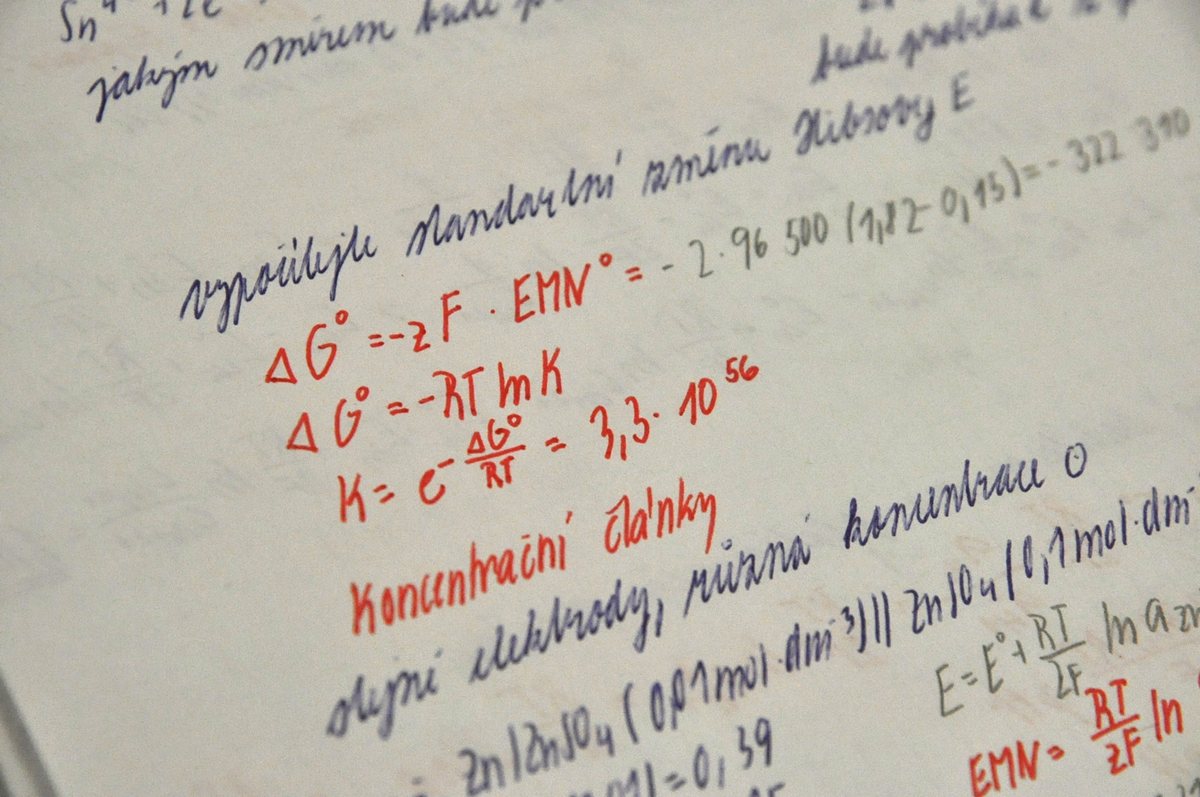 Sn⁴⁺ + 2e
jakým směrem bude
bude probíhat
vypočítejte standartní změnu Gibsovy E
ΔG° = -zF · EMN° = - 2 · 96 500 (1,82 - 0,15) = - 322 310
ΔG° = -RT ln K
K = e^(-ΔG°/RT) = 3,3 · 10⁵⁶
Koncentrační články
stejné elektrody, různá koncentrace
Zn|ZnSO₄ (0,01 mol·dm⁻³) || ZnSO₄ (0,1 mol·dm⁻
E = E° + RT/2F ln a Zn
= 0,39
EMN = RT/zF ln